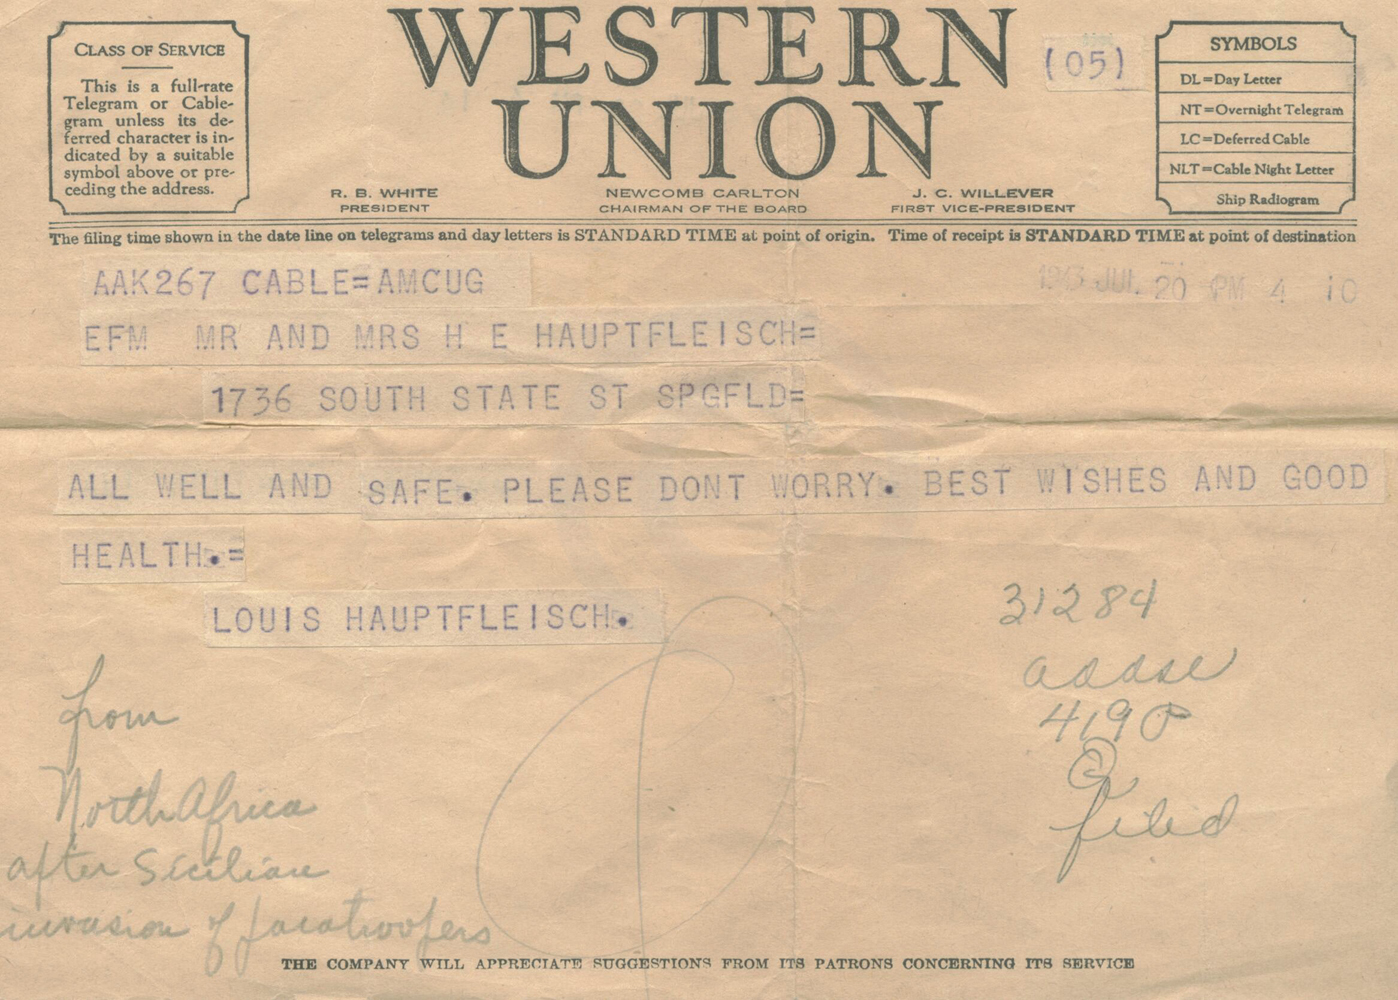 CLASS OF SERVICE
This is a full-rate
Telegram or Cable-
gram unless its de-
ferred character is in-
dicated by a suitable
symbol above or pre-
ceding the address.
WESTERN
UNION
(05)
R. B. WHITE
PRESIDENT
NEWCOMB CARLTON
CHAIRMAN OF THE BOARD
J. C. WILLEVER
FIRST VICE-PRESIDENT
SYMBOLS
DL=Day Letter
NT=Overnight Telegram
LC=Deferred Cable
NLT=Cable Night Letter
Ship Radiogram
The filing time shown in the date line on telegrams and day letters is STANDARD TIME at point of origin. Time of receipt is STANDARD TIME at point of destination
AAK267 CABLE=AMCUG
1943 JUL 20 PM 4 10
EFM MR AND MRS H E HAUPTFLEISCH=
1736 SOUTH STATE ST SPGFLD=
ALL WELL AND SAFE. PLEASE DONT WORRY. BEST WISHES AND GOOD
HEALTH.=
LOUIS HAUPTFLEISCH.
31284
419P
filed
from
North Africa
after Sicilian
invasion of paratroopers
THE COMPANY WILL APPRECIATE SUGGESTIONS FROM ITS PATRONS CONCERNING ITS SERVICE